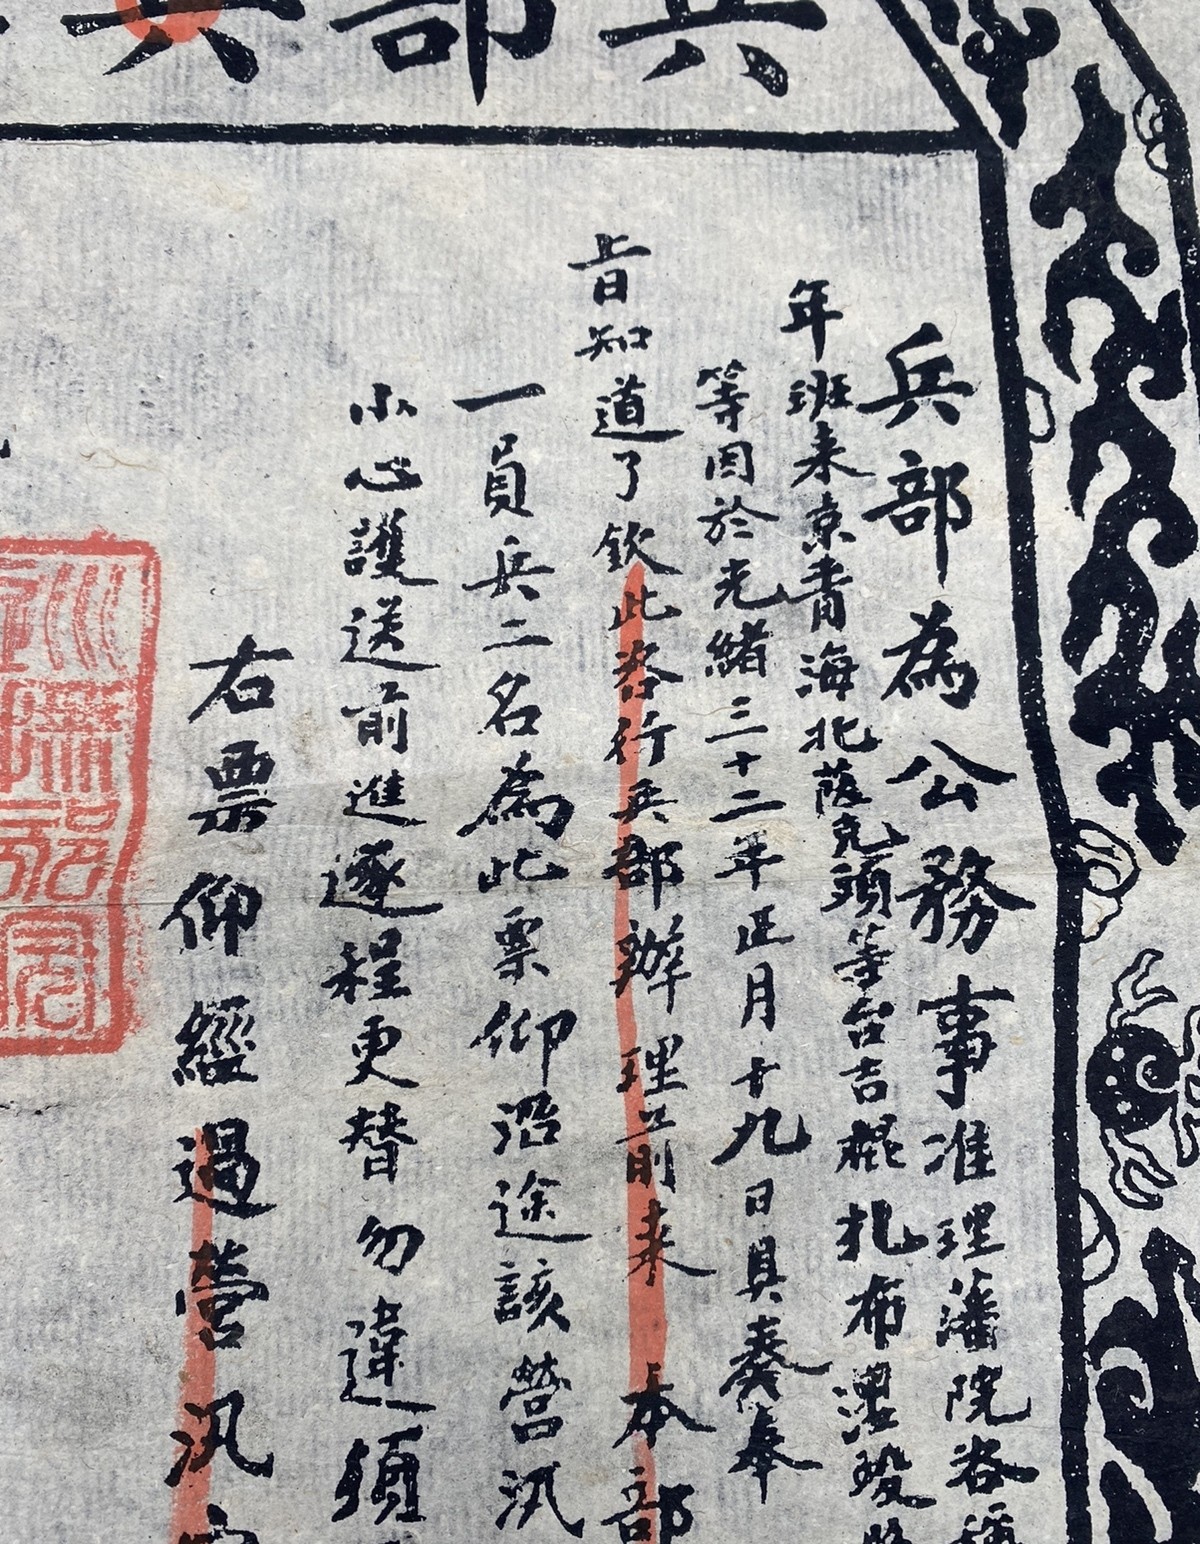 兵部
兵部為公務事准理藩院咨稱
年班来京青海北薩克頭等台吉棍扎布
等因於光緒三十二年正月十九日具奏奉
旨知道了欽此咨行兵部辦理並前来本部
一員兵二名為此票仰沿途該營汛
小心護送前進逐程更替勿違須
右票仰經過營汛